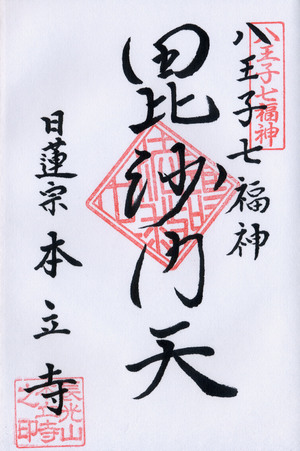 八王子七福神
八王子七福神
毘沙门天
日蓮宗 本立寺
長光山
本立寺
之印